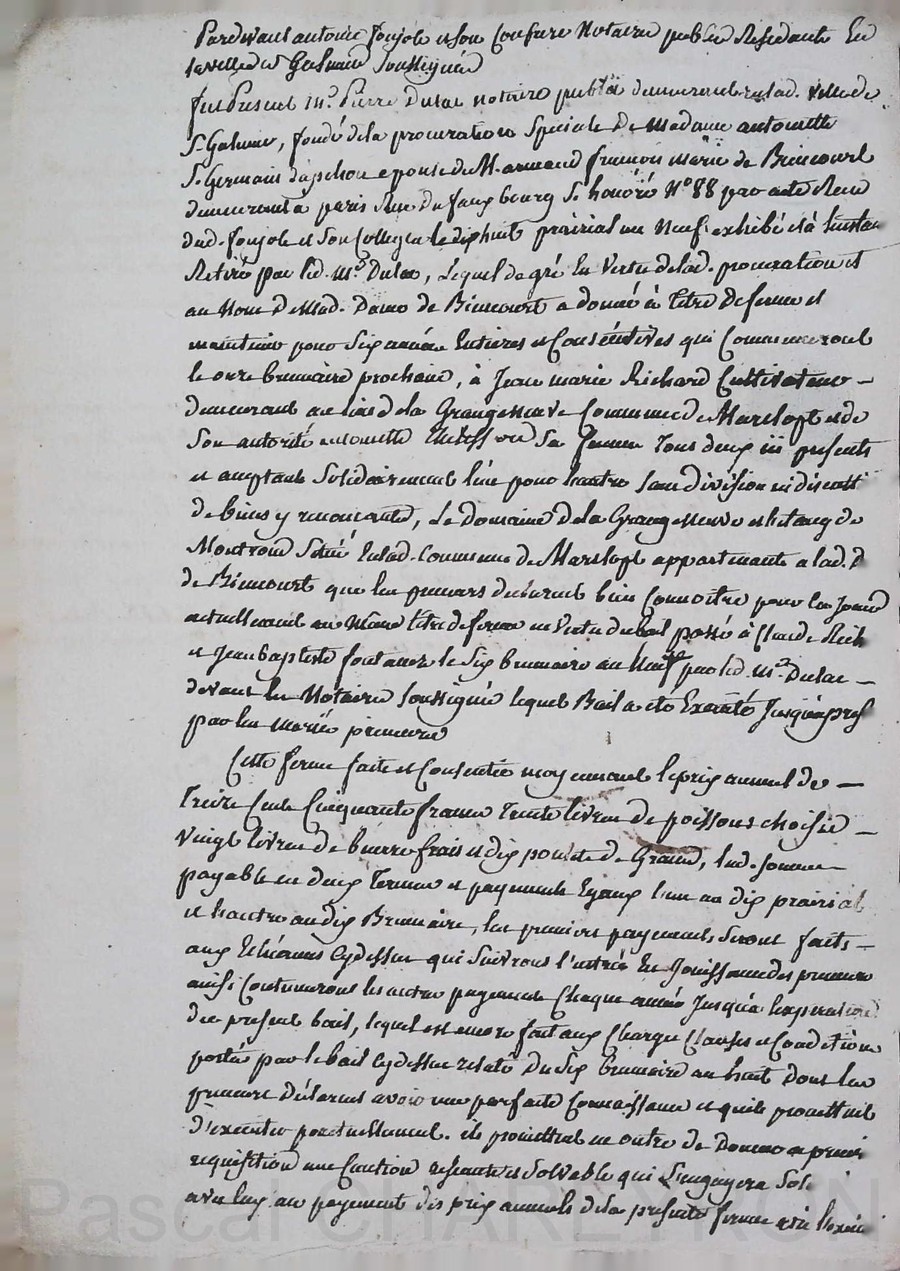 Pardevant antoine Joujole et son Confrere Notaire public Residants En
la ville de St Galmier Soussignés
fut Present me. Pierre Dulac notaire public demeurant en lad. ville de
St. Galmier, fondé de la procuration Speciale De Madame antoinette
St. Germain Dapchon epouse de M. armand francois marie de Biencourt
demeurant a paris Rue Du faux bourg St. honoré No 88 par acte Recu
dud. Joujole et Son Collegue le dix huit prairial an Neuf exhibé et à linstan
Retiré par led. me. Dulac, Lequel de gré En Vertu de lad. procuration et
au Nom De Mad. Dame de Biencourt a donné à titre De ferme et
maintenir pour Six années Entieres et Consécutives qui Commenceront
le onze brumaire prochain, à Jean marie Richard Cultivateur -
demeurant au lieu de la Grangeneuve Commune de Marclopt et de
Son autorité antoinette Sa femme tous deux ici presents
et acceptants Solidairement l'un pour lautre Sans division ni discuti
de biens y renoncants, Le Domaine De la Grangeneuve et letang de
Montrond Situé En lad. Commune de Marclopt appartenants a lad. D
de Biencourt que les preneurs declarent bien Connoitre pour en Jouir
actuellement au même titre de ferme en Vertu du bail passé à Claude Rich
et Jean baptiste le Six brumaire an huit par led. me. Dulac -
devant les Notaires Soussignés lequel Bail a eté Exécuté Jusqu'a pres
par les mariés preneurs
Cette ferme faite et Consentie moyennant le prix annuel de -
Treize Cents Cinquante francs Trente livres de poissons choisie -
Vingt livres de beurre frais et dix de Grains, lad. Somme
payable en deux Termes et payements Egaux l'un au dix prairial
et lautre au dix Brumaire, les premiers payements Seront faits -
aux Echéances Cydessus qui Suivront l'entrée En Jouissance des preneurs
ainsi Continueront les autres payements Chaque année Jusqu'a lexpiration
du present bail, lequel est encore fait aux Charges Clauses et Conditions
portés par le bail Cydessus relaté Du Six brumaire an huit Dont les
preneurs Déclarent avoir une parfaite Connaissance et quils promettent
d'executer ponctuellement. ils promettent en outre de Donner a premiere
requisition une Caution et Solvable qui Sengagera Soli
avec eux au payement des prix annuels de la presente ferme et à lexécu
Pascal CHARLEYRON